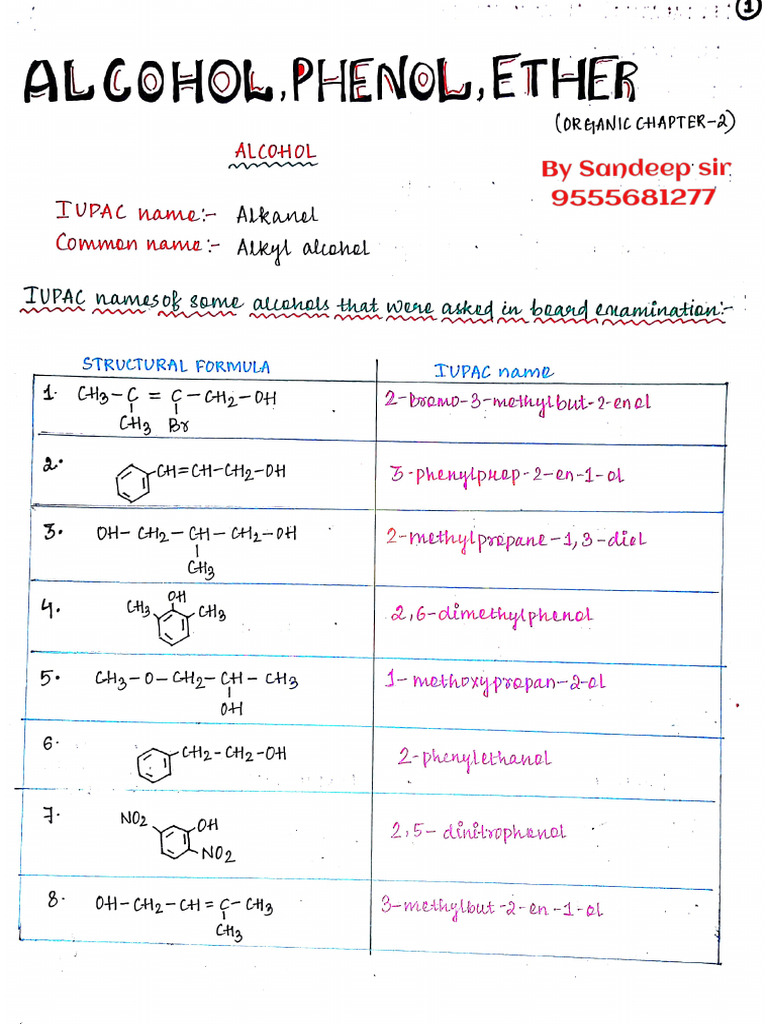 1
ALCOHOL, PHENOL, ETHER
(ORGANIC CHAPTER-2)
ALCOHOL
By Sandeep sir
9555681277
IUPAC name:- Alkanol
Common name:- Alkyl alcohol
IUPAC names of some alcohols that were asked in board examination:-
STRUCTURAL FORMULA IUPAC name
1. CH3-C = C-CH2-OH 2-bromo-3-methylbut-2-enol
CH3 Br
2. CH=CH-CH2-OH 3-phenylprop-2-en-1-ol
3. OH-CH2-CH-CH2-OH 2-methylpropane-1,3-diol
CH3
4. CH3 OH CH3 2,6-dimethylphenol
5. CH3-O-CH2-CH-CH3 1-methoxypropan-2-ol
OH
6. CH2-CH2-OH 2-phenylethanol
7. NO2 OH 2,5-dinitrophenol
NO2
8. OH-CH2-CH=C-CH3 3-methylbut-2-en-1-ol
CH3